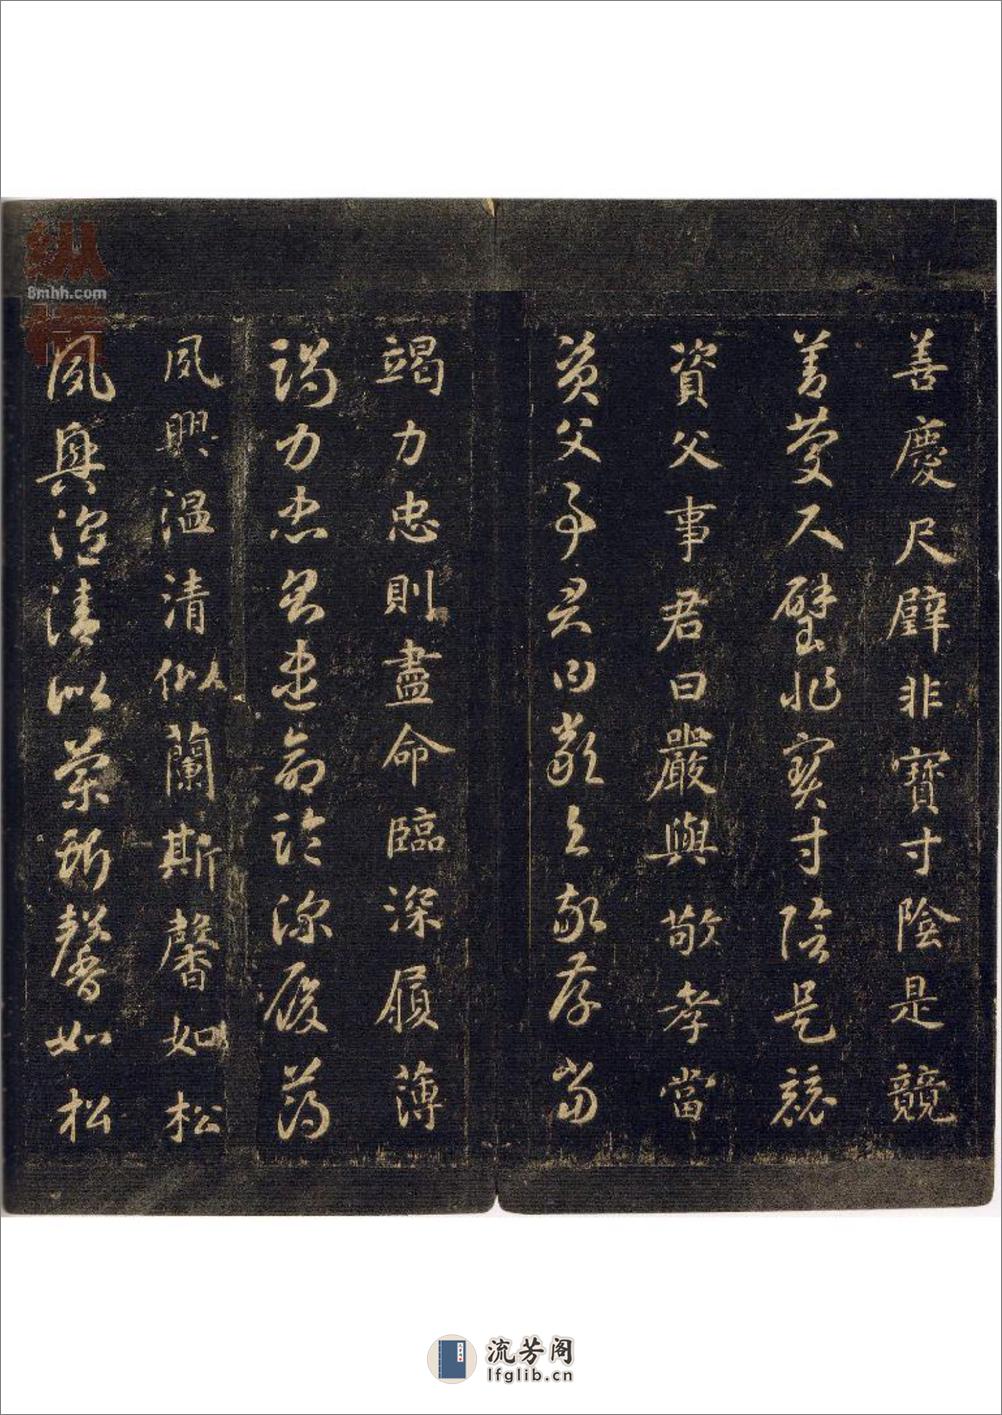 善慶尺璧非寶寸陰是競
善慶尺璧非寶寸陰是競
資父事君曰嚴與敬孝當
資父事君曰嚴與敬孝當
竭力忠則盡命臨深履薄
竭力忠則盡命臨深履薄
夙興温清似蘭斯馨如松
夙興温清似蘭斯馨如松
8mhh.com
流芳阁
lfglib.cn